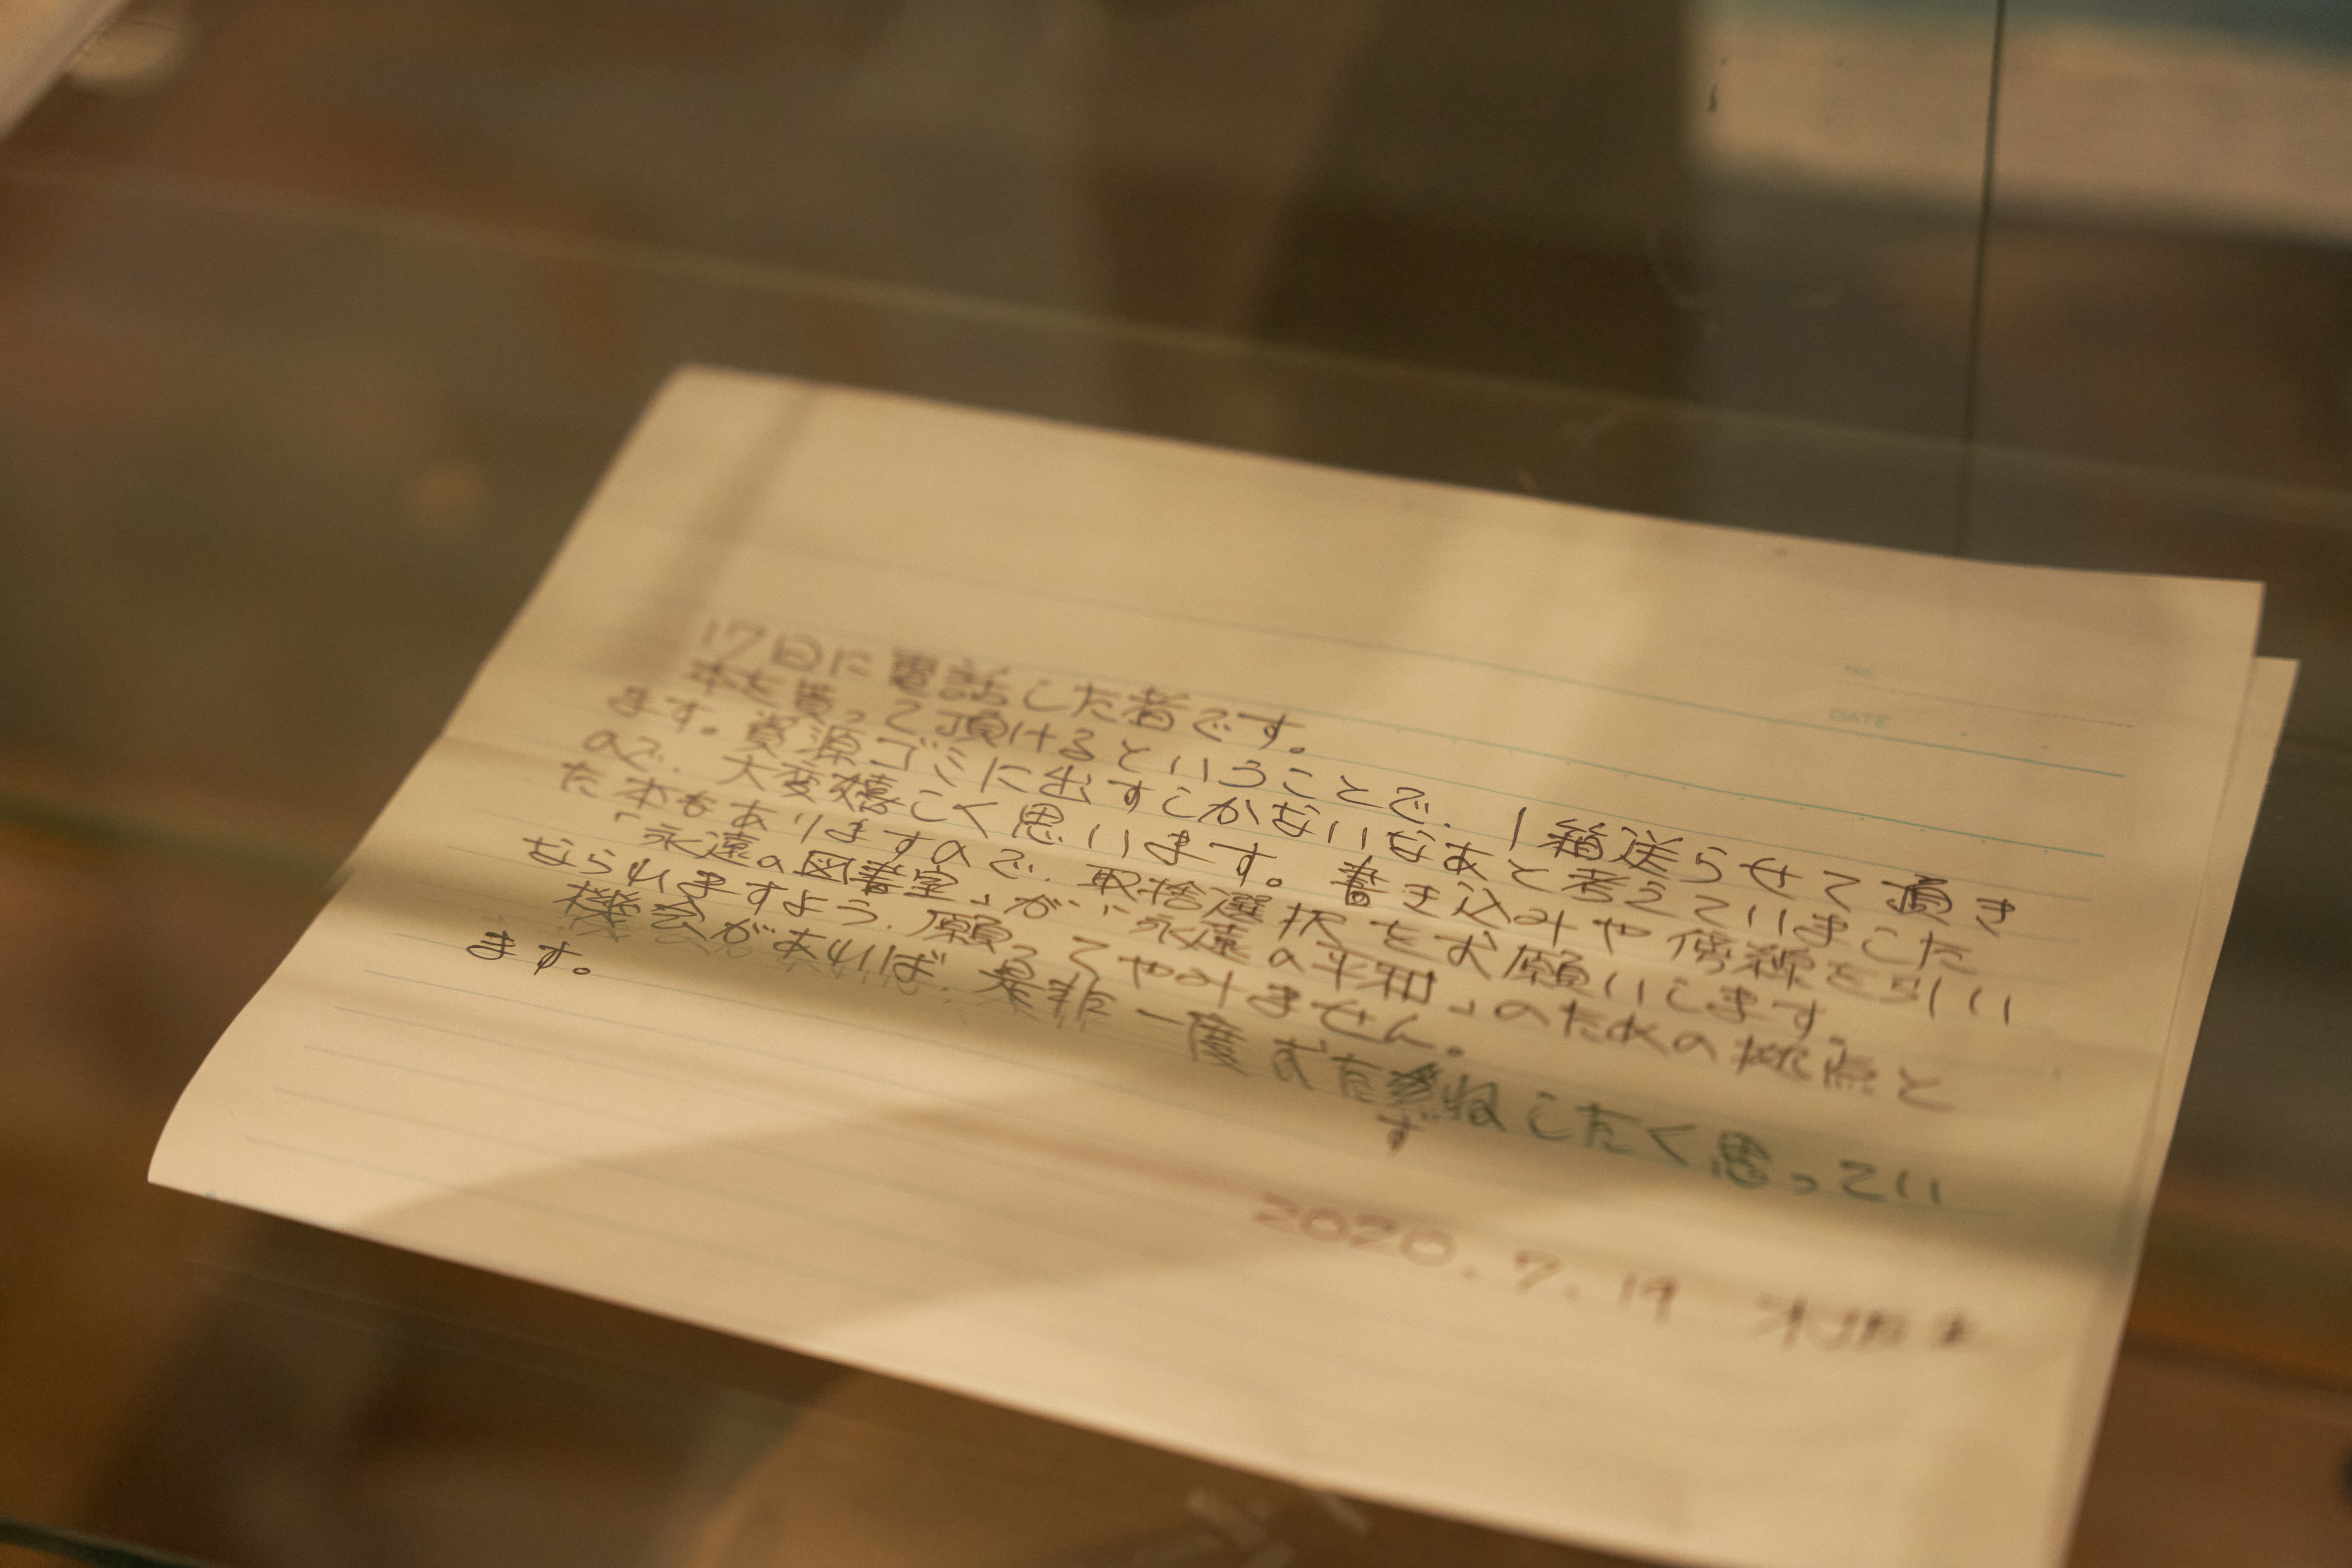 No.
DATE
17日に電話した者です。
本を貰って頂けるということで、1箱送らせて頂き
ます。資源ゴミに出すしかないなあと考えていました
ので、大変嬉しく思います。書き込みや傍線を引い
た本もありますので、取捨選択をお願いします。
「永遠の図書室」が、「永遠の平和」のための拠点と
なられますよう、願ってやみません。
機会があれば、是非一度おたずねしたく思ってい
ます。
2020.7.19